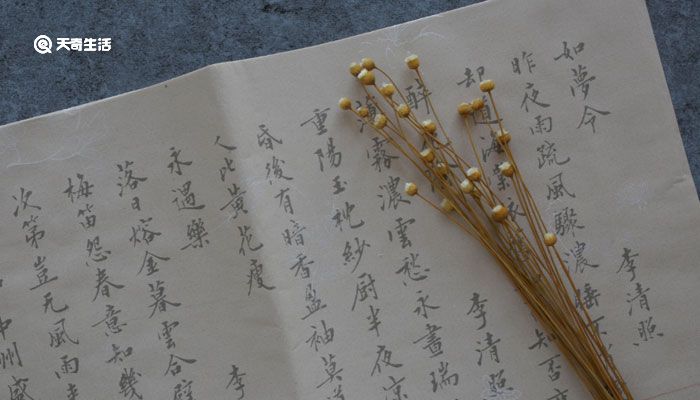 天奇生活
如夢令 李清照
昨夜雨疏風驟濃睡不
却道海棠依 知否
醉 李清照
薄霧濃雲愁永晝瑞
重陽玉枕紗厨半夜凉
昏後有暗香盈袖莫
人比黃花瘦
永遇樂 李
落日熔金暮雲合璧
梅笛怨春意知幾
次第豈无風雨
中州盛